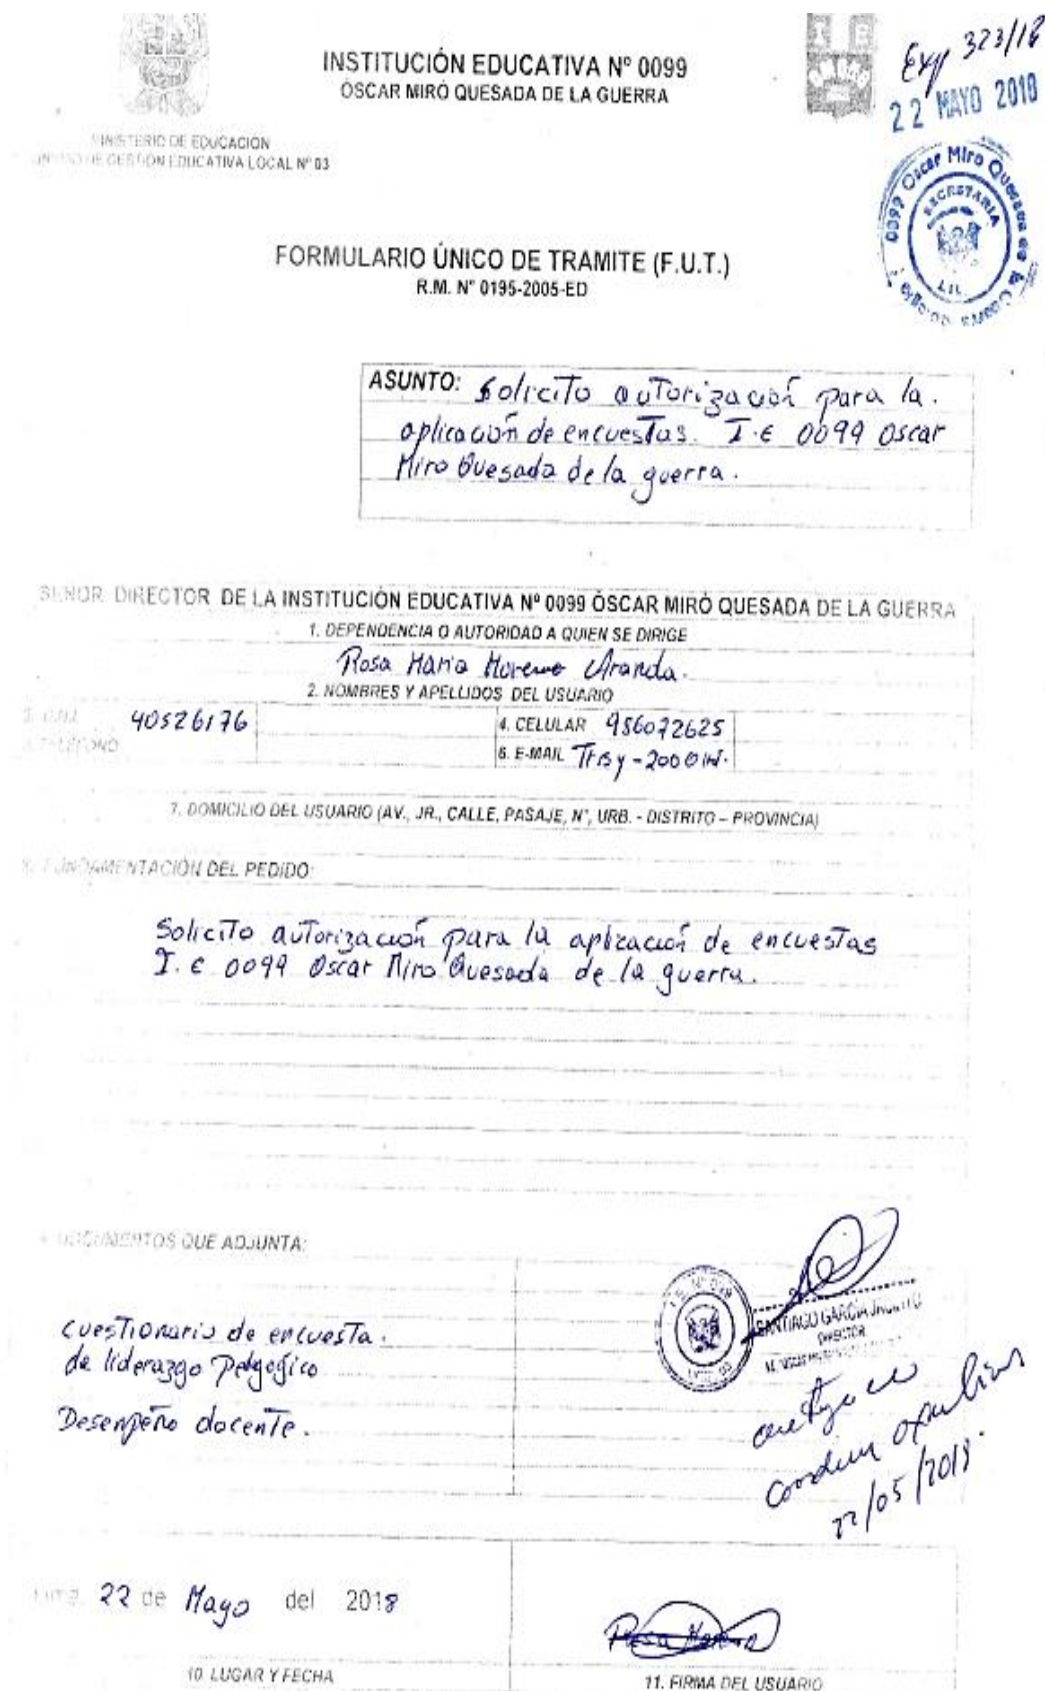 INSTITUCIÓN EDUCATIVA Nº 0099
ÓSCAR MIRÓ QUESADA DE LA GUERRA
Exp 323/18
22 MAYO 2018
MINISTERIO DE EDUCACIÓN
DE GESTIÓN EDUCATIVA LOCAL Nº 03
0099 Oscar Miro Quesada de la Guerra
SECRETARIA
FORMULARIO ÚNICO DE TRAMITE (F.U.T.)
R.M. Nº 0195-2005-ED
ASUNTO: Solicito autorización para la
aplicación de encuestas. I.E 0099 Oscar
Miro Quesada de la guerra.
SEÑOR DIRECTOR DE LA INSTITUCIÓN EDUCATIVA Nº 0099 ÓSCAR MIRÓ QUESADA DE LA GUERRA
1. DEPENDENCIA O AUTORIDAD A QUIEN SE DIRIGE
Rosa Maria Moreno Aranda.
2. NOMBRES Y APELLIDOS DEL USUARIO
40526176 4. CELULAR 986072625
TELÉFONO 6. E-MAIL
7. DOMICILIO DEL USUARIO (AV., JR., CALLE, PASAJE, Nº, URB. - DISTRITO – PROVINCIA)
8. FUNDAMENTACIÓN DEL PEDIDO:
Solicito autorización para la aplicación de encuestas
I.E 0099 Oscar Miro Quesada de la guerra.
DOCUMENTOS QUE ADJUNTA:
Cuestionario de encuesta.
de liderazgo
Desempeño docente.
SANTIAGO GARCÍA
DIRECTOR
22/05/2018.
Lima 22 de Mayo del 2018
Rosa
10. LUGAR Y FECHA
11. FIRMA DEL USUARIO